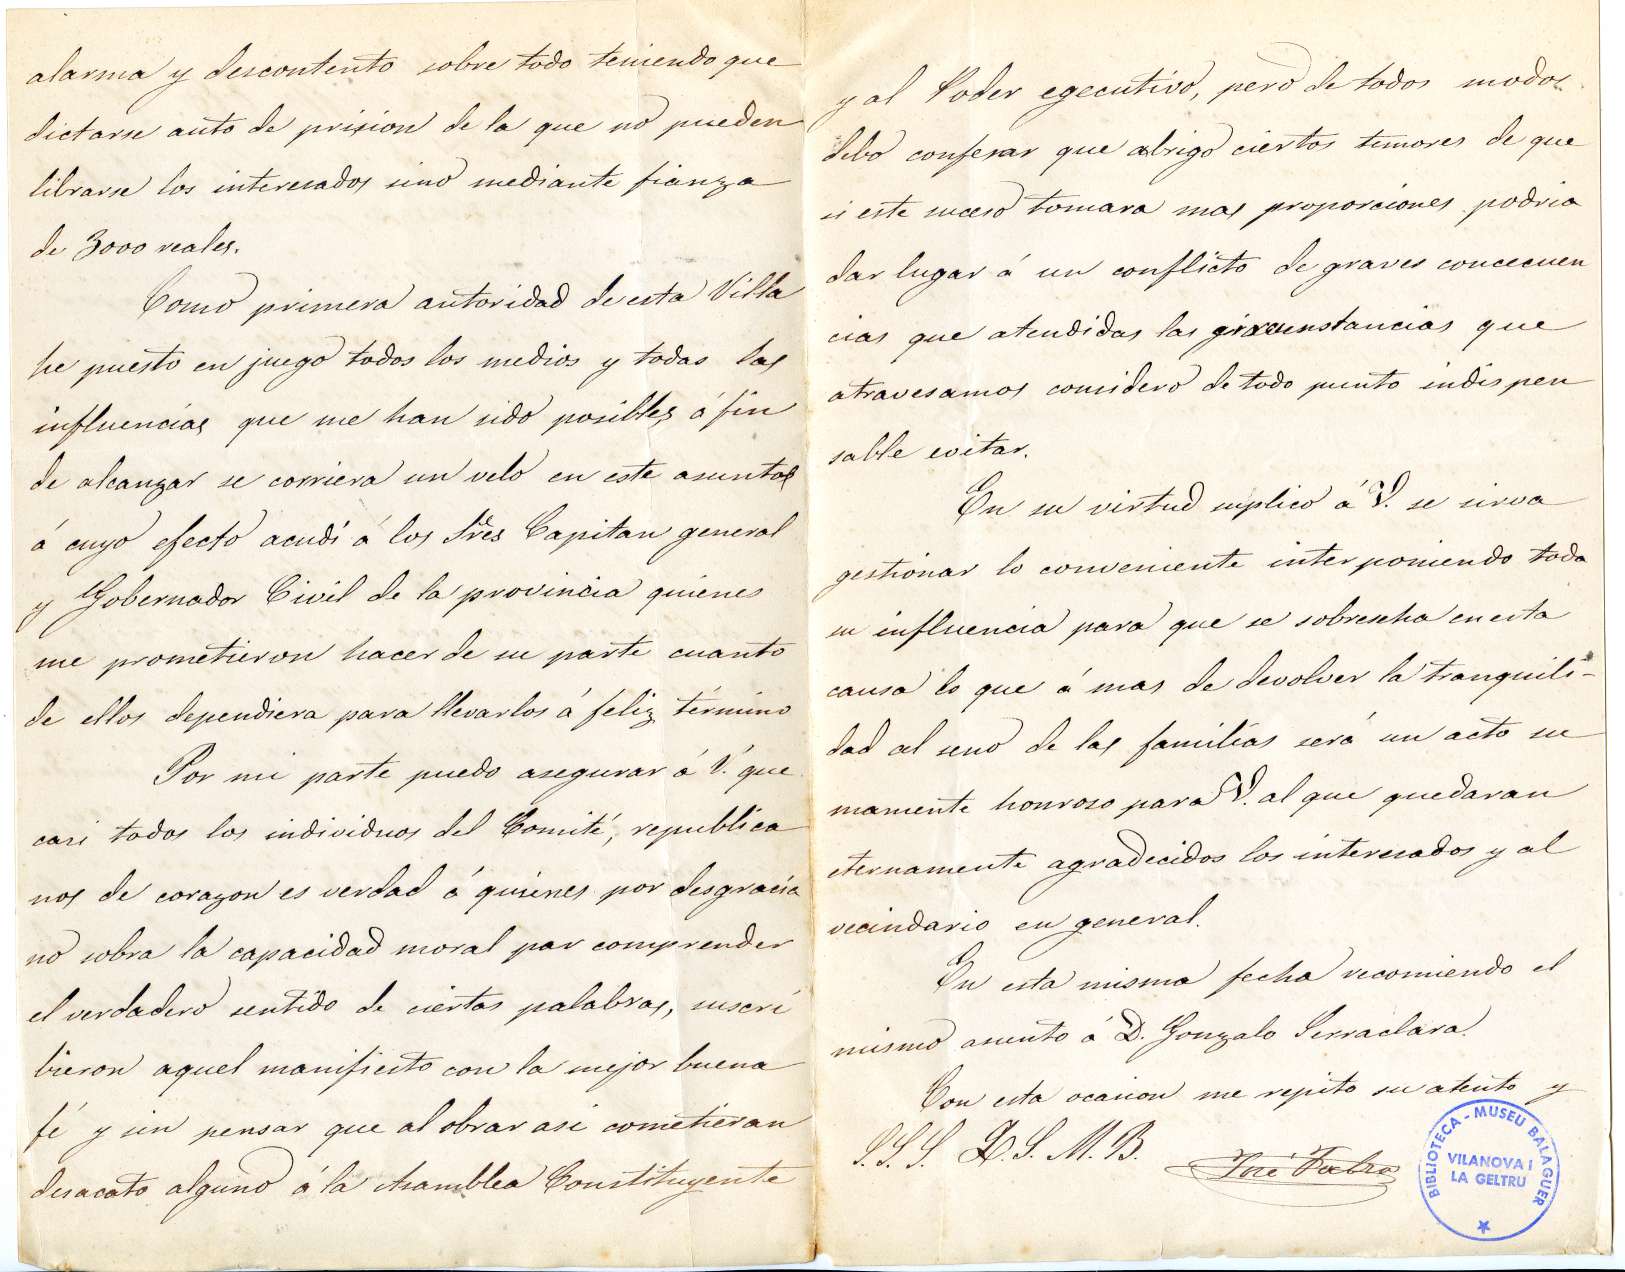 alarma y descontento sobre todo teniendo que
dictarse auto de prision de la que no pueden
librarse los interesados sino mediante fianza
de 3000 reales.
Como primera autoridad de esta Villa
he puesto en juego todos los medios y todas las
influencias que me han sido posibles á fin
de alcanzar se corriera un velo en este asunto
á cuyo efecto acudí á los Sres Capitan general
y Gobernador Civil de la provincia quienes
me prometieron hacer de su parte cuanto
de ellos dependiera para llevarlos á feliz término
Por mi parte puedo asegurar á V. que
casi todos los individuos del Comité, republica
nos de corazon es verdad á quienes por desgracia
no sobra la capacidad moral par comprender
el verdadero sentido de ciertas palabras, suscri
bieron aquel manifiesto con la mejor buena
fé y sin pensar que al obrar asi cometieran
desacato alguno á la Asamblea Constituyente
y al Poder egecutivo, pero de todos modos
debo confesar que abrigo ciertos temores de que
si este suceso tomara mas proporciones podria
dar lugar á un conflicto de graves concecuen
cias que atendidas las circunstancias que
atravesamos considero de todo punto indispen
sable evitar.
En su virtud suplico á V. se sirva
gestionar lo conveniente interponiendo toda
su influencia para que se sobreseha en esta
causa lo que á mas de devolver la tranquili-
dad al seno de las familias será un acto su
mamente honroso para V. al que quedaran
eternamente agradecidos los interesados y al
vecindario en general.
En esta misma fecha recomiendo el
mismo asunto á D. Gonzalo Serraclara.
Con esta ocasion me repito su atento y
S.S.S. Q.S.M.B.
José Fabra
BIBLIOTECA - MUSEU BALAGUER
VILANOVA I
LA GELTRU